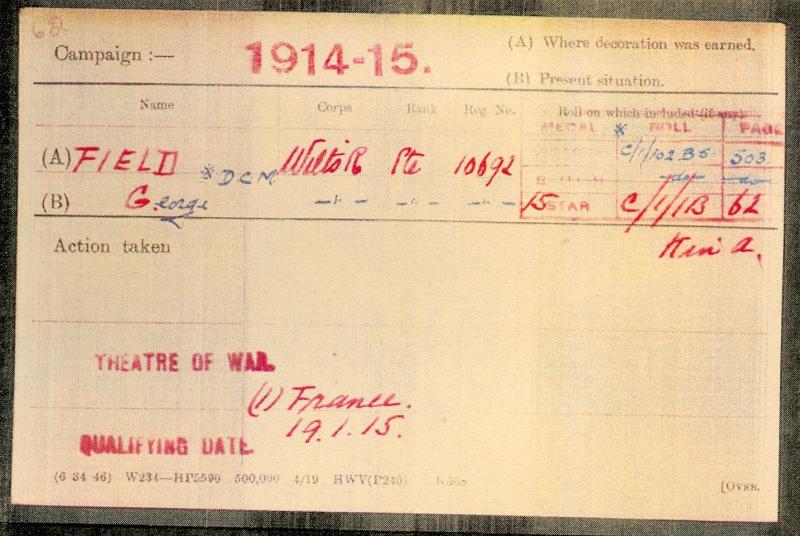 62
Campaign :— 1914-15. (A) Where decoration was earned.
(B) Present situation.
Name Corps Rank Reg. No. Roll on which included (if any)
MEDAL * ROLL PAGE
(A) FIELD * D C M Wilts R Pte 10692 C/1/102 B5 503
BRITISH -do- -do-
(B) George —"— —"— —"— 15 STAR C/1/1B 62
Action taken
THEATRE OF WAR.
(1) France.
19.1.15.
QUALIFYING DATE.
(6 34 46) W234—HP5590 500,000 4/19 HWV(P240) K608
[OVER.